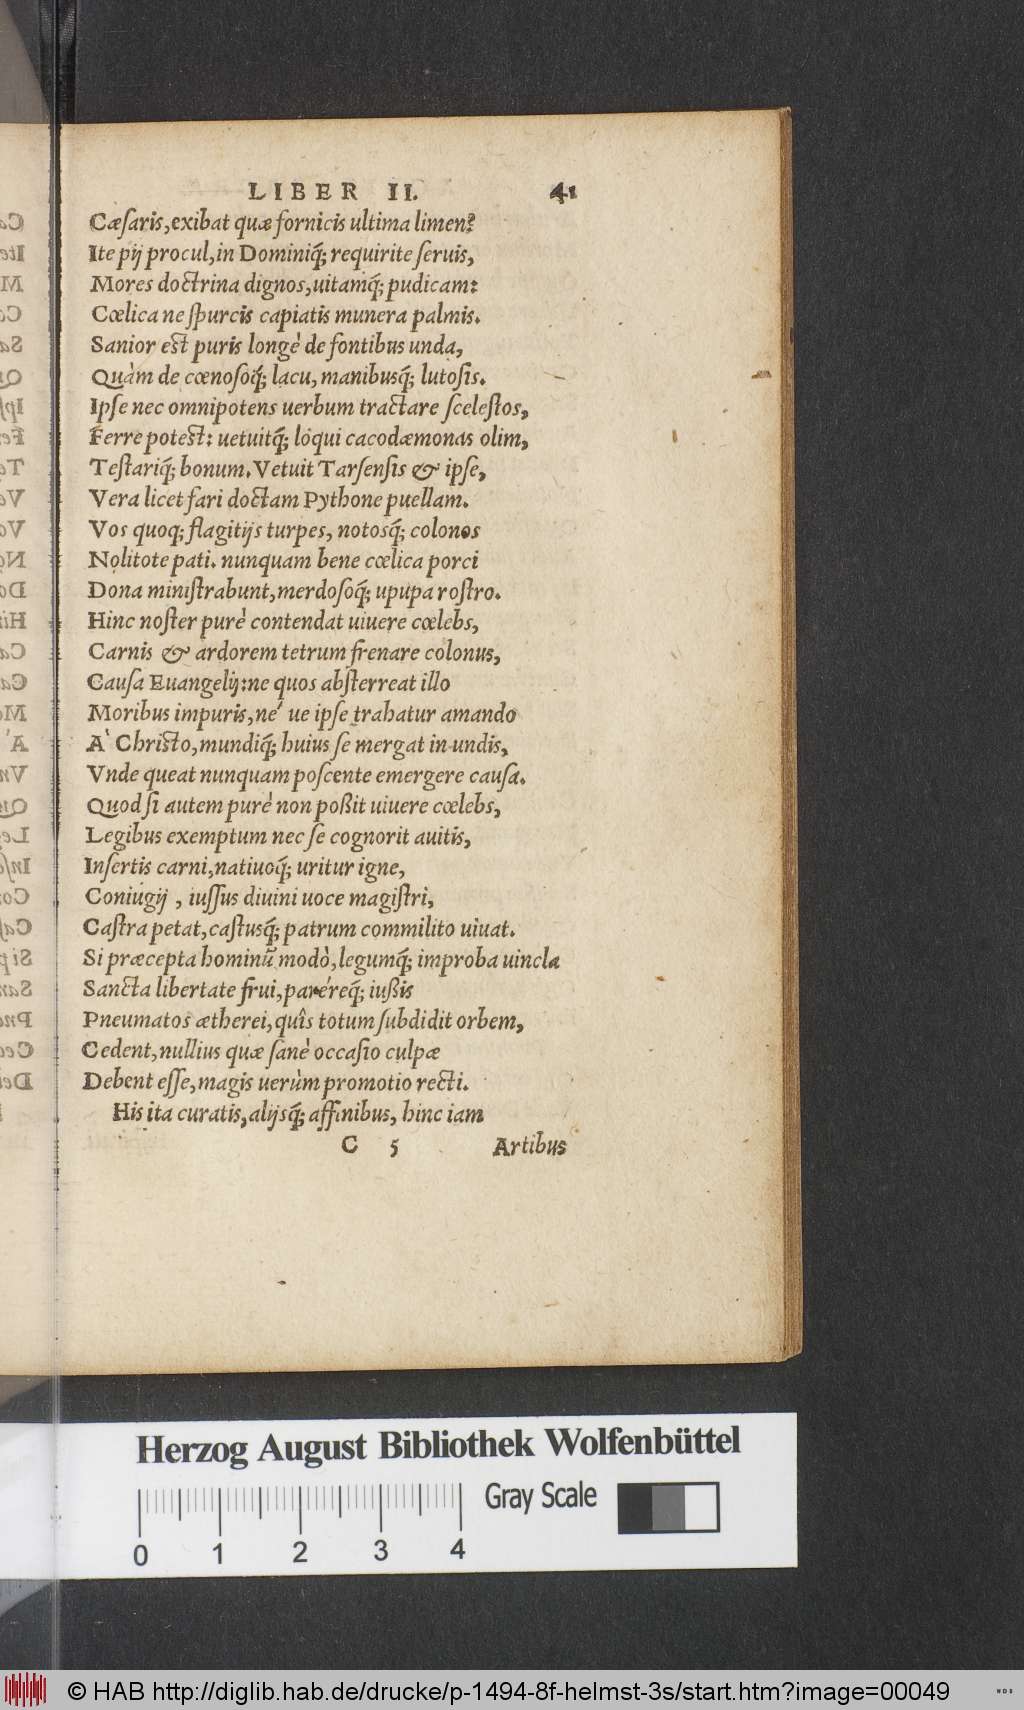 LIBER II. 41
Cæſaris, exibat quæ fornicis ultima limen?
Ite pij procul, in Dominiq́; requirite ſeruis,
Mores doctrina dignos, uitamq́; pudicam:
Cœlica ne ſpurcis capiatis munera palmis.
Sanior est puris longè de fontibus unda,
Quàm de cœnoſoq́; lacu, manibusq́; lutoſis.
Ipſe nec omnipotens uerbum tractare ſceleſtos,
Ferre potest: uetuitq́; loqui cacodæmonas olim,
Teſtariq́; bonum. Vetuit Tarſenſis & ipſe,
Vera licet fari doctam Pythone puellam.
Vos quoq; flagitijs turpes, notosq́; colonos
Nolitote pati. nunquam bene cœlica porci
Dona miniſtrabunt, merdoſoq́; upupa roſtro.
Hinc noſter purè contendat uiuere cœlebs,
Carnis & ardorem tetrum frenare colonus,
Cauſa Euangelij: ne quos abſterreat illo
Moribus impuris, né ue ipſe trahatur amando
A` Chriſto, mundiq́; huius ſe mergat in undis,
Vnde queat nunquam poſcente emergere cauſa.
Quod ſi autem purè non poßit uiuere cœlebs,
Legibus exemptum nec ſe cognorit auitis,
Inſertis carni, natiuoq́; uritur igne,
Coniugij, iuſſus diuini uoce magiſtri,
Caſtra petat, caſtusq́; patrum commilito uiuat.
Si præcepta hominũ modò, legumq́; improba uincla
Sancta libertate frui, paréreq́; iußis
Pneumatos ætherei, quîs totum ſubdidit orbem,
Cedent, nullius quæ ſanè occaſio culpæ
Debent eſſe, magis uerùm promotio recti.
His ita curatis, alijsq́; affinibus, hinc iam
C 5 Artibus
Herzog August Bibliothek Wolfenbüttel
0 1 2 3 4 Gray Scale
© HAB http://diglib.hab.de/drucke/p-1494-8f-helmst-3s/start.htm?image=00049